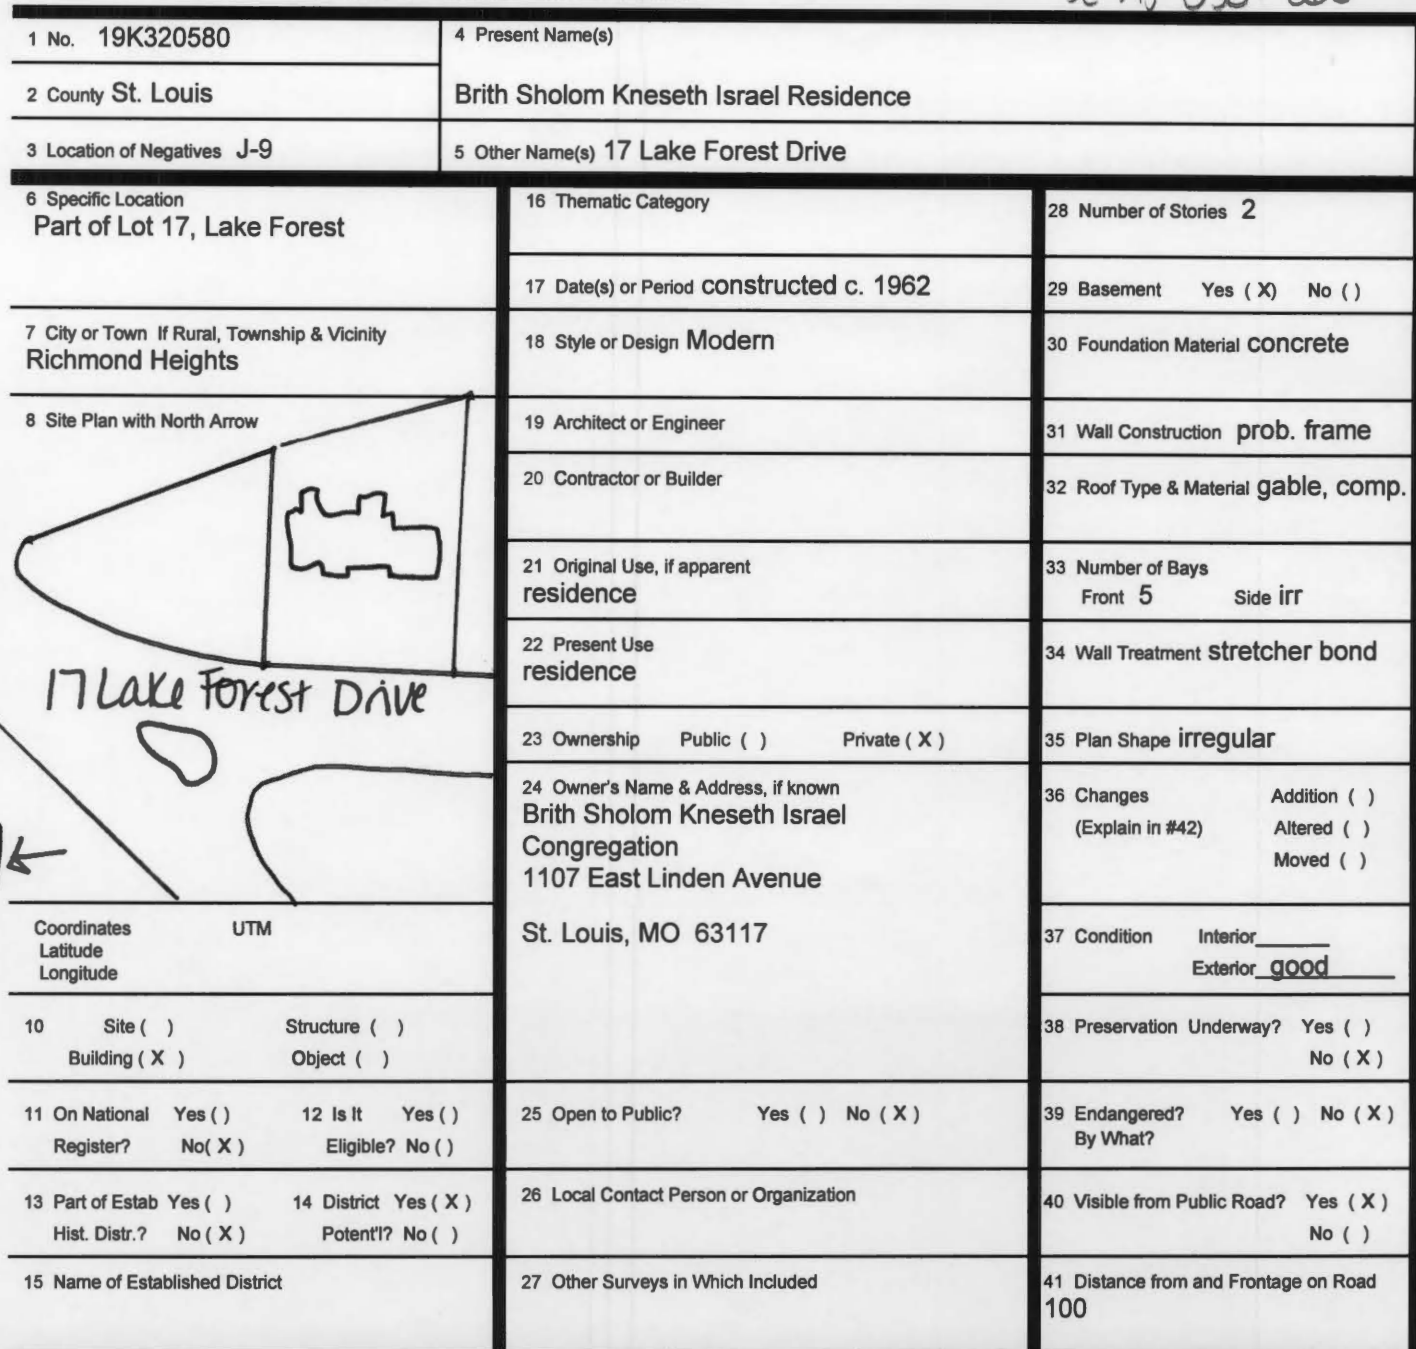 1 No. 19K320580
2 County St. Louis
3 Location of Negatives J-9
4 Present Name(s)
Brith Sholom Kneseth Israel Residence
5 Other Name(s) 17 Lake Forest Drive
6 Specific Location
Part of Lot 17, Lake Forest
7 City or Town If Rural, Township & Vicinity
Richmond Heights
8 Site Plan with North Arrow
17 Lake Forest Drive
Coordinates UTM
Latitude
Longitude
10 Site ( ) Structure ( )
Building ( X ) Object ( )
11 On National Yes ( ) 12 Is It Yes ( )
Register? No( X ) Eligible? No ( )
13 Part of Estab Yes ( ) 14 District Yes ( X )
Hist. Distr.? No ( X ) Potent'l? No ( )
15 Name of Established District
16 Thematic Category
17 Date(s) or Period constructed c. 1962
18 Style or Design Modern
19 Architect or Engineer
20 Contractor or Builder
21 Original Use, if apparent
residence
22 Present Use
residence
23 Ownership Public ( ) Private ( X )
24 Owner's Name & Address, if known
Brith Sholom Kneseth Israel
Congregation
1107 East Linden Avenue
St. Louis, MO 63117
25 Open to Public? Yes ( ) No ( X )
26 Local Contact Person or Organization
27 Other Surveys in Which Included
28 Number of Stories 2
29 Basement Yes ( X) No ( )
30 Foundation Material concrete
31 Wall Construction prob. frame
32 Roof Type & Material gable, comp.
33 Number of Bays
Front 5 Side irr
34 Wall Treatment stretcher bond
35 Plan Shape irregular
36 Changes Addition ( )
(Explain in #42) Altered ( )
Moved ( )
37 Condition Interior
Exterior good
38 Preservation Underway? Yes ( )
No ( X )
39 Endangered? Yes ( ) No ( X )
By What?
40 Visible from Public Road? Yes ( X )
No ( )
41 Distance from and Frontage on Road
100